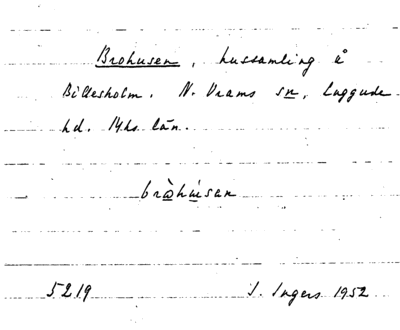 Brohusen, hussamling å
Billesholm. N. Vrams sn, Luggude
hd. Mhs. län.
bròhúsan
5219 I. Ingers 1952